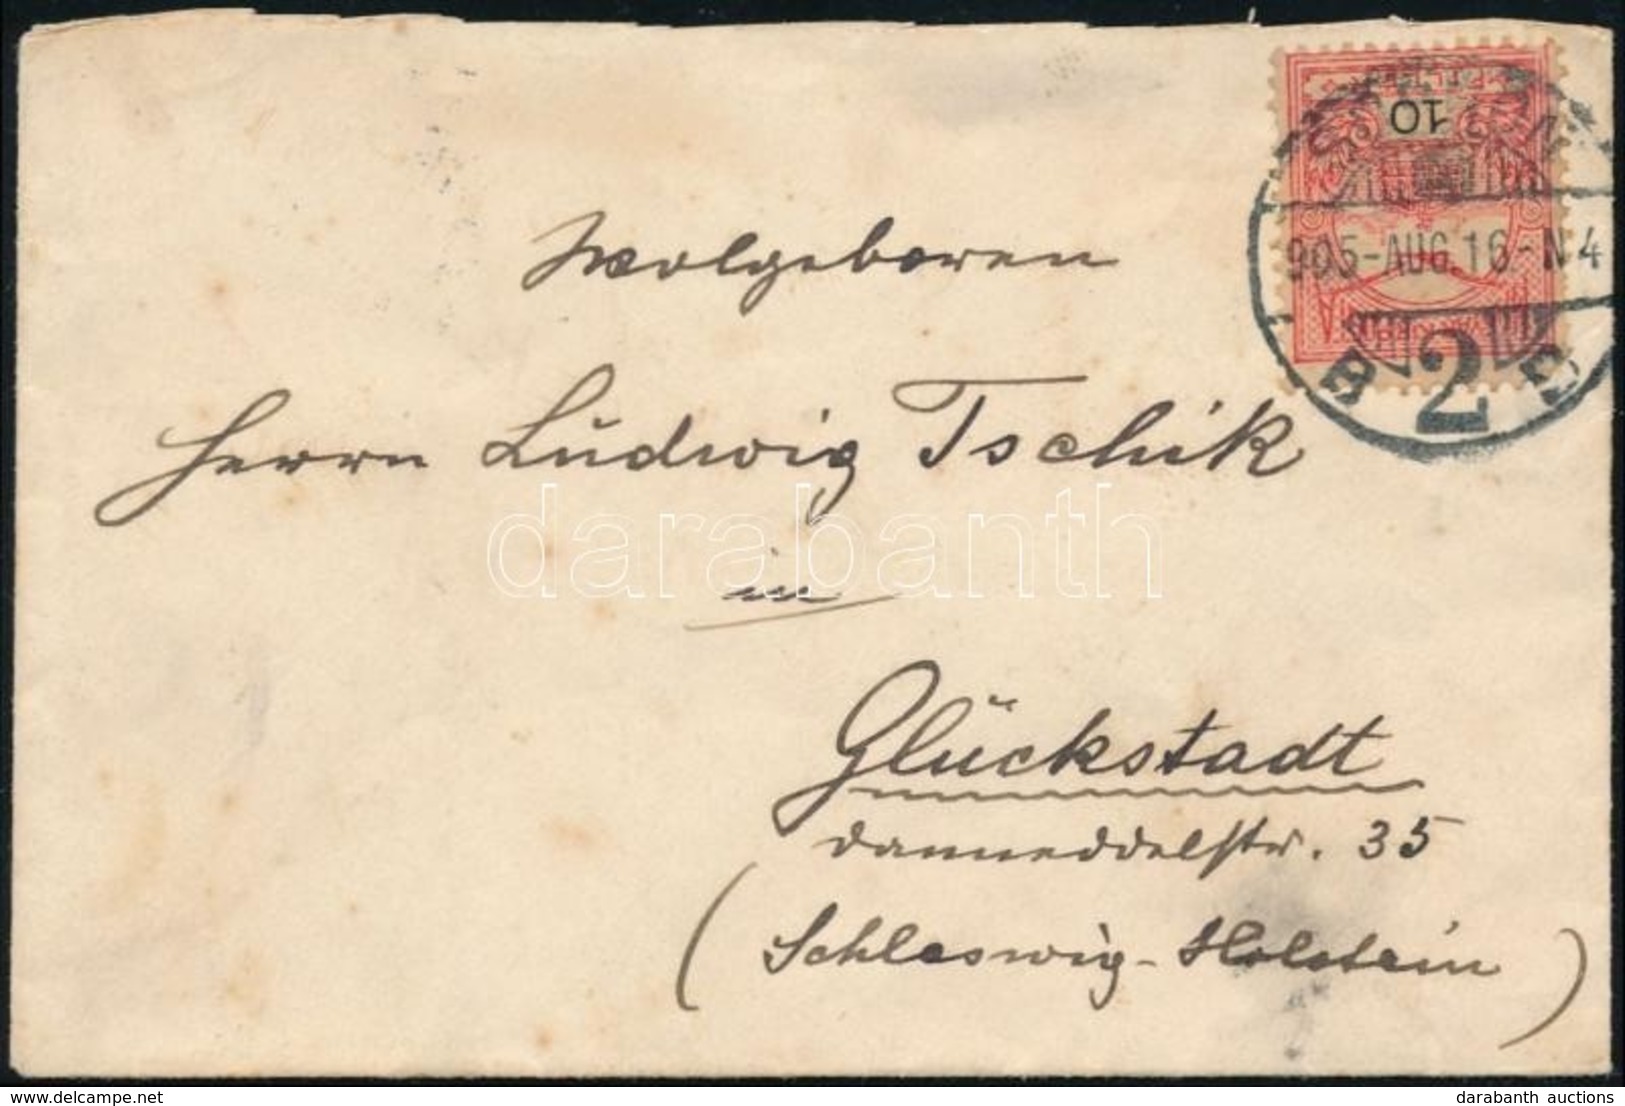 10
905-AUG 16-N4
B 2 B
Wolgeboren
Herrn Ludwig Tschik
in
Glückstadt
Danneddelstr. 35
(Schleswig-Holstein)
darabanth
www.delcampe.net
darabanth auctions